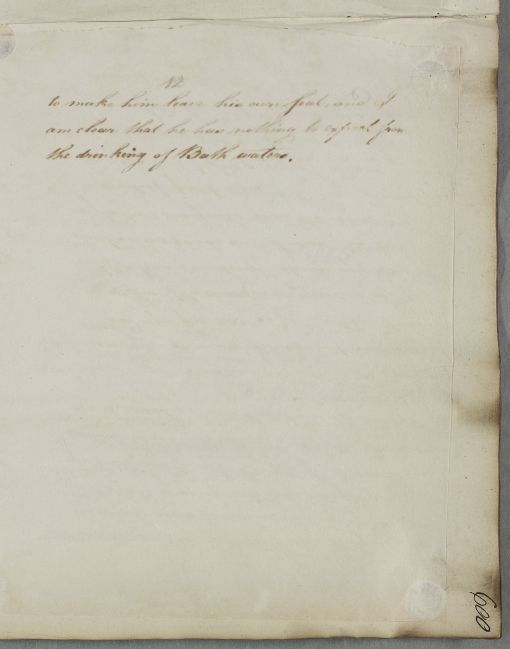 12
to make him leave his own seat, and I
am clear that he has nothing to expect from
the drinking of Bath waters.
600